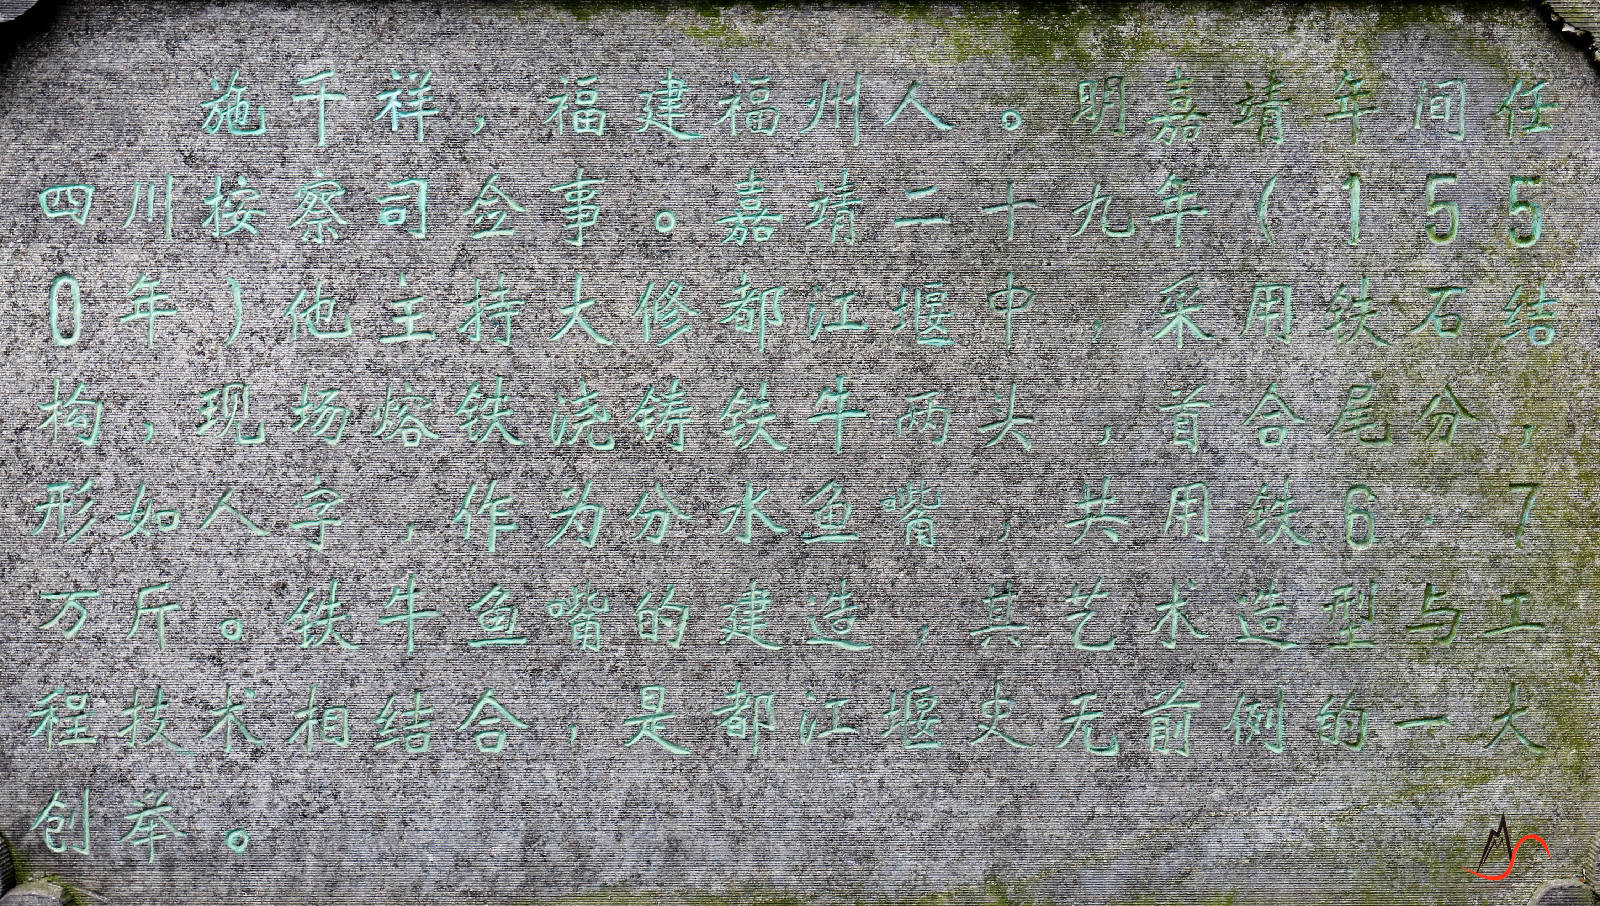 施千祥，福建福州人。明嘉靖年间任
四川按察司佥事。嘉靖二十九年（155
0年）他主持大修都江堰中，采用铁石结
构，现场熔铁浇铸铁牛两头，首合尾分，
形如人字，作为分水鱼嘴，共用铁6·7
万斤。铁牛鱼嘴的建造，其艺术造型与工
程技术相结合，是都江堰史无前例的一大
创举。